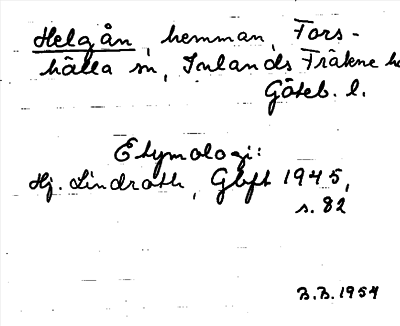 Helgån, hemman, Fors-
hälla sn, Inlands Fräkne h
Göteb. l.
Etymologi:
Hj. Lindroth, Gbft 1945,
s. 82
B.B. 1954